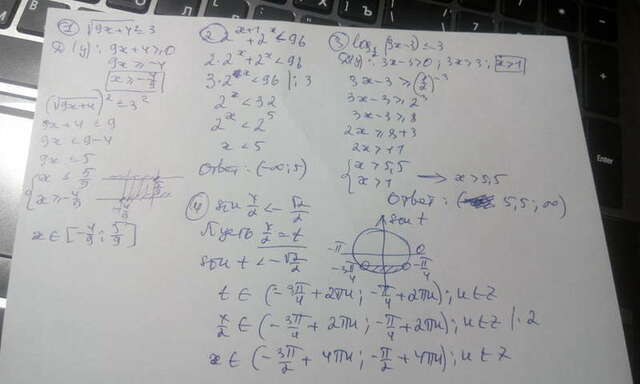 ① √9x+4 ≤ 3
D(y): 9x+4 ≥ 0
9x ≥ -4
x ≥ -4/9
(√9x+4)² ≤ 3²
9x+4 ≤ 9
9x ≤ 9-4
9x ≤ 5
{ x ≤ 5/9
x ≥ -4/9
x ∈ [-4/9; 5/9]
② 2^(x+1) + 2^x < 96
2·2^x + 2^x < 96
3·2^x < 96 | : 3
2^x < 32
2^x < 2^5
x < 5
Ответ: (-∞; 5)
③ (3x-3) ≤ -3
D(y): 3x-3>0; 3x>3; x>1
3x-3 ≥ (1/2)^-3
3x-3 ≥ 2^3
3x-3 ≥ 8
2x ≥ 8+3
2x > 11
{ x > 5,5
x > 1 → x > 5,5
Ответ: ( 5,5; ∞)
④ sin x/2 < -√2/2
Пусть x/2 = t
sin t < -√2/2
sin t
-π 0
-3π/4 -π/4
t ∈ (-3π/4 + 2πn; -π/4 + 2πn); n ∈ Z
x/2 ∈ (-3π/4 + 2πn; -π/4 + 2πn); n ∈ Z | · 2
x ∈ (-3π/2 + 4πn; -π/2 + 4πn); n ∈ Z